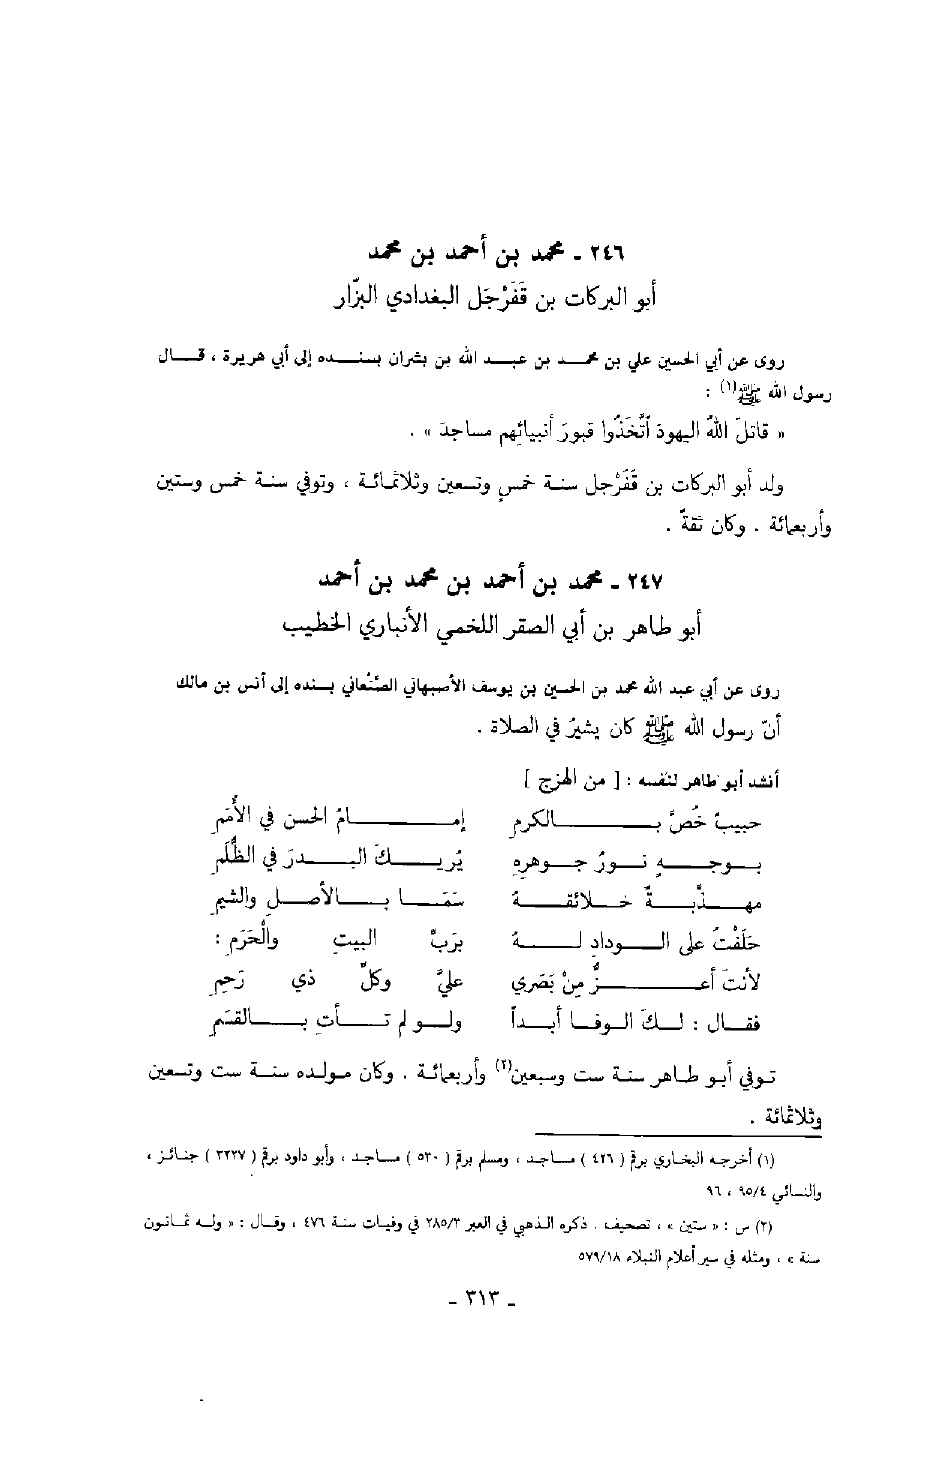 ٢٤٦ ـ محمد بن أحمد بن محمد
أبو البركات بن قَفَرْجَل البغدادي البزّار
روى عن أبي الحسين علي بن محمد بن عبد الله بن بشران بسنده إلى أبي هريرة ، قال
رسول الله ﷺ(١) :
« قاتلَ اللهُ اليهودَ أتَّخَذُوا قبورَ أنبيائِهم مساجدَ » .
ولد أبو البركات بن قَفَرْجل سنة خمسٍ وتسعين وثلاثمائة ، وتوفي سنة خمس وستين
وأربعمائة . وكان ثقةً .
٢٤٧ ـ محمد بن أحمد بن محمد بن أحمد
أبو طاهر بن أبي الصقر اللخمي الأنباري الخطيب
روى عن أبي عبد الله محمد بن الحسين بن يوسف الأصبهاني الصَّنْعاني بسنده إلى أنس بن مالك
أنّ رسول الله ﷺ كان يشيرُ في الصلاة .
أنشد أبو طاهر لنفسه : [ من الهزج ]
حبيبٌ خُصَّ بالكرمِ إمامُ الحسن في الأُمَمِ
بوجهٍ نورُ جوهرِهِ يُريكَ البدرَ في الظُّلَمِ
مهذَّبةٌ خلائقهُ سَمَا بالأصلِ والشيمِ
حَلَفْتُ على الودادِ لهُ برَبِّ البيتِ والْحَرَمِ :
لأنتَ أعزُّ مِنْ بَصَري عليَّ وكلِّ ذي رَحِمِ
فقال : لكَ الوفا أبداً ولو لم تأتِ بالقسَمِ
توفي أبو طاهر سنة ست وسبعين(٢) وأربعمائة . وكان مولده سنة ست وتسعين
وثلاثمائة .
(١) أخرجه البخاري برقم ( ٤٢٦ ) مساجد ، ومسلم برقم ( ٥٣٠ ) مساجد ، وأبو داود برقم ( ٣٢٢٧ ) جنائز ،
والنسائي ٩٥/٤ ، ٩٦
(٢) س : « ستين » ، تصحيف . ذكره الذهبي في العبر ٢٨٥/٣ في وفيات سنة ٤٧٦ ، وقال : « وله ثمانون
سنة » ، ومثله في سير أعلام النبلاء ٥٧٩/١٨
ـ ٣١٣ ـ